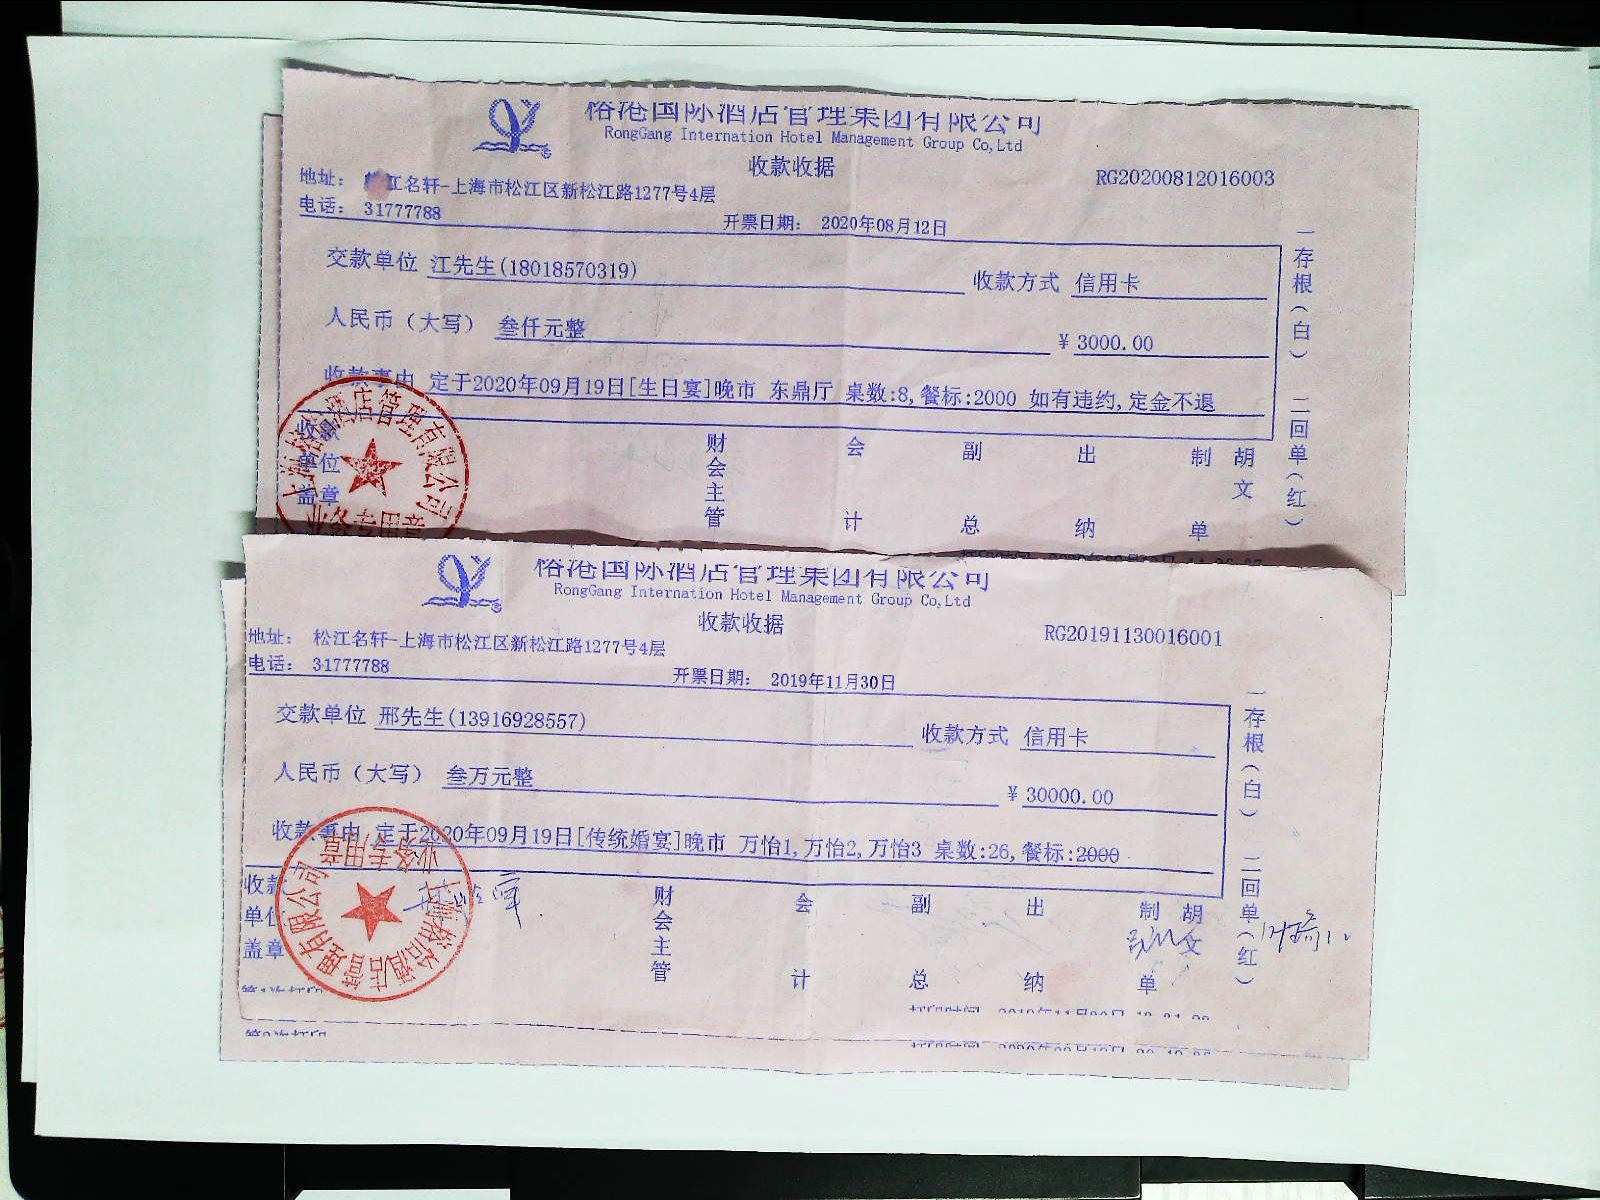 榕港国际酒店管理集团有限公司
RongGang Internation Hotel Management Group Co,Ltd
收款收据
RG20200812016003
地址： 松江名轩-上海市松江区新松江路1277号4层
电话： 31777788
开票日期： 2020年08月12日
交款单位 江先生(18018570319)
收款方式 信用卡
人民币（大写） 叁仟元整
¥ 3000.00
收款事由 定于2020年09月19日[生日宴]晚市 东鼎厅 桌数:8,餐标:2000 如有违约,定金不退
收款单位盖章
财会主管
会计
副总
出纳
制单
胡文
一存根（白） 二回单（红）
业务专用章
榕港国际酒店管理集团有限公司
RongGang Internation Hotel Management Group Co,Ltd
收款收据
RG20191130016001
地址： 松江名轩-上海市松江区新松江路1277号4层
电话： 31777788
开票日期： 2019年11月30日
交款单位 邢先生(13916928557)
收款方式 信用卡
人民币（大写） 叁万元整
¥ 30000.00
收款事由 定于2020年09月19日[传统婚宴]晚市 万怡1,万怡2,万怡3 桌数:26,餐标:2000
收款单位盖章
财会主管
会计
副总
出纳
制单
胡文
一存根（白） 二回单（红）
业务专用章